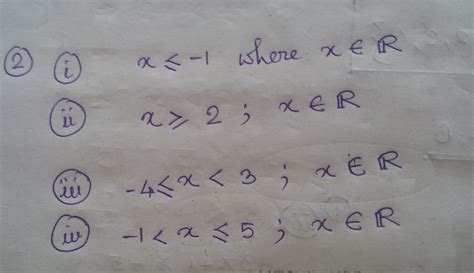 2 i x ≤ -1 where x ∈ ℝ
ii x ≥ 2 ; x ∈ ℝ
iii -4 ≤ x < 3 ; x ∈ ℝ
iv -1 < x ≤ 5 ; x ∈ ℝ